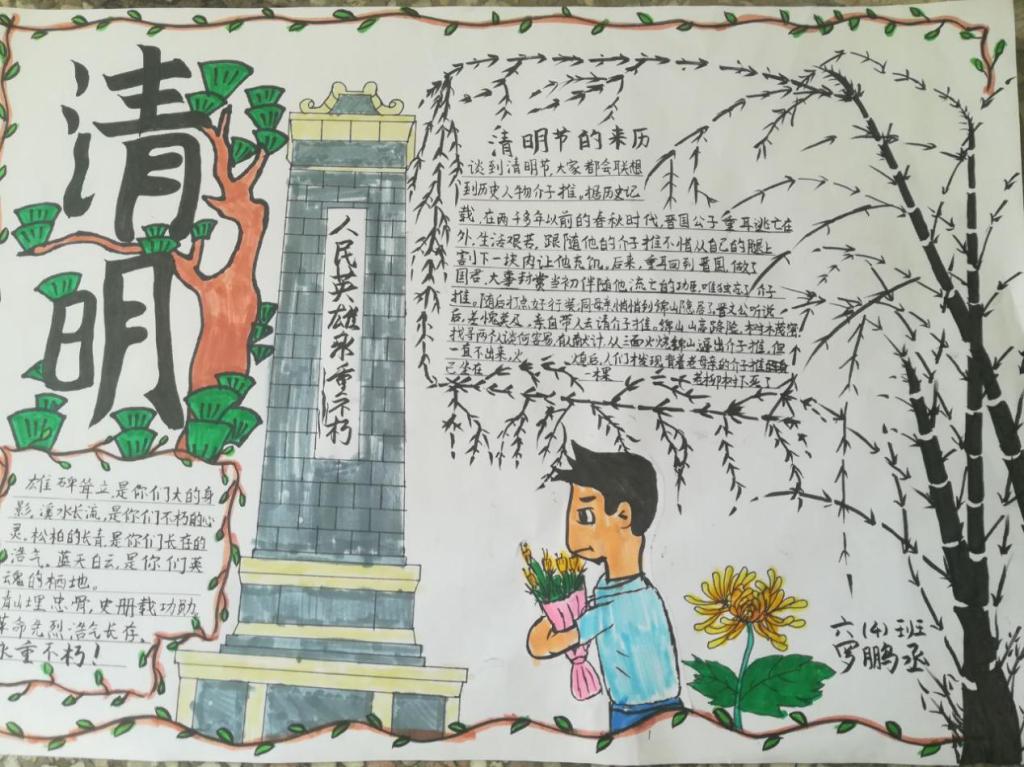 清
明
人民英雄永垂不朽
清明节的来历
谈到清明节,大家都会联想
到历史人物介子推。据历史记
载,在两千多年以前的春秋时代,晋国公子重耳逃亡在
外,生活艰苦,跟随他的介子推不惜从自己的腿上
割下一块肉让他充饥。后来,重耳回到晋国,做了
国君,大事封赏当初伴随他流亡的功臣,唯独忘了介子
推。随后打点好行装,同母亲悄悄到绵山隐居了晋文公听说
后,羞愧莫及,亲自带人去请介子推。绵山山高路险,树木茂密,
找寻两个人谈何容易,有人献计,从三面火烧绵山,逼出介子推,但
一直不出来,火 熄后,人们才发现背着老母亲的介子推
己坐在 一棵 老柳树下死了
雄碑耸立,是你们大的身
影,溪水长流,是你们不朽的心
灵,松柏的长青,是你们长在的
浩气。蓝天白云,是你们英
魂的栖地。
青山埋忠骨,史册载功勋
革命先烈,浩气长存,
永垂不朽!
六(4)班
罗鹏丞